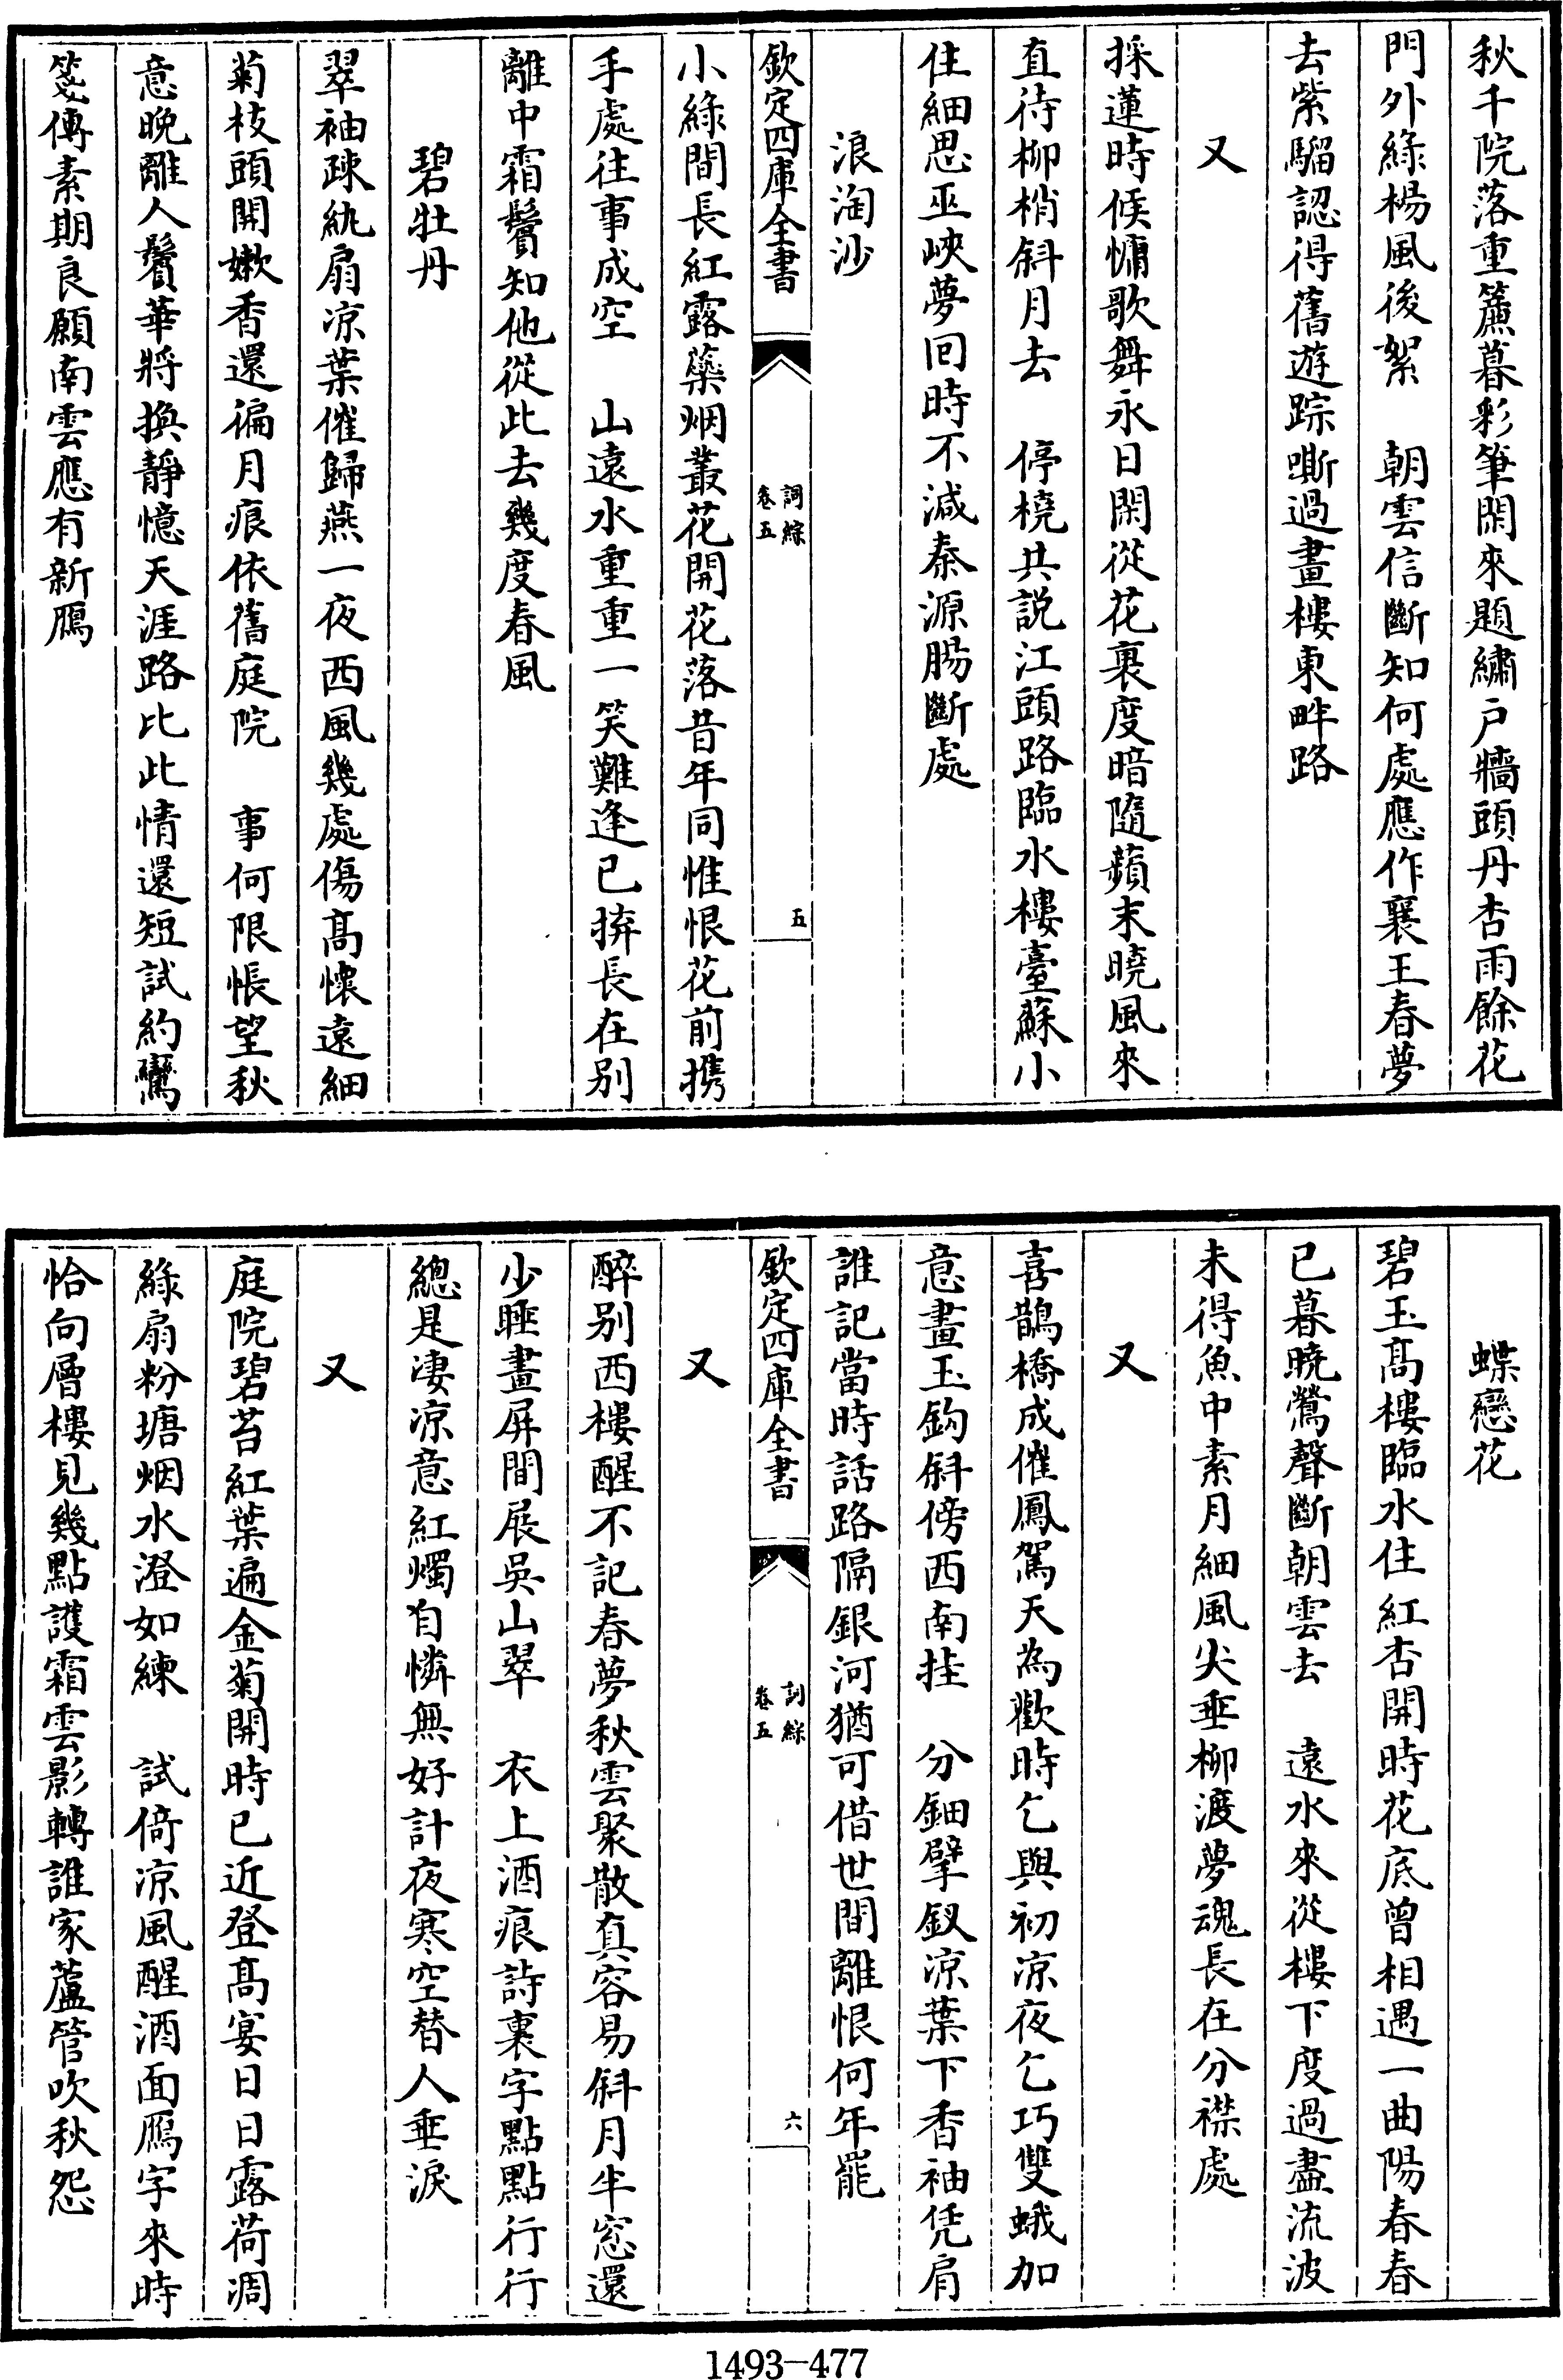 秋千院落重簾暮彩筆閑來題繡戸牆頭丹杏雨餘花
門外綠楊風後絮　朝雲信斷知何處應作襄王春夢
去紫騮認得舊遊踪嘶過畫樓東畔路
又
採蓮時候慵歌舞永日閑從花裏度暗隨蘋末曉風來
直待柳梢斜月去　停橈共說江頭路臨水樓臺蘇小
住細思巫峽夢回時不減秦源腸斷處
浪淘沙
欽定四庫全書
詞綜
卷五
五
小綠間長紅露蘂烟叢花開花落昔年同惟恨花前攜
手處往事成空　山遠水重重一笑難逢已拚長在别
離中霜鬢知他從此去幾度春風
碧牡丹
翠袖疎紈扇凉葉催歸燕一夜西風幾處傷髙懷遠細
菊枝頭開嫩香還徧月痕依舊庭院　事何限悵望秋
意晚離人鬢華將換靜憶天涯路比此情還短試約鸞
箋傳素期良願南雲應有新鴈
蝶戀花
碧玉髙樓臨水住紅杏開時花底曾相遇一曲陽春春
已暮曉鶯聲斷朝雲去　遠水來從樓下度過盡流波
未得魚中素月細風尖垂柳渡夢魂長在分襟處
又
喜鵲橋成催鳳駕天為歡時乞與初凉夜乞巧雙蛾加
意畫玉鈎斜傍西南挂　分鈿擘釵凉葉下香袖凭肩
誰記當時話路隔銀河猶可借世間離恨何年罷
欽定四庫全書
詞綜
卷五
六
又
醉别西樓醒不記春夢秋雲聚散真容易斜月半窓還
少睡畫屏間展吳山翠　衣上酒痕詩裏字點點行行
總是凄凉意紅燭自憐無好計夜寒空替人垂淚
又
庭院碧苔紅葉遍金菊開時已近登髙宴日日露荷凋
綠扇粉塘烟水澄如練　試倚凉風醒酒面鴈字來時
恰向層樓見幾點護霜雲影轉誰家蘆管吹秋怨
1493—477